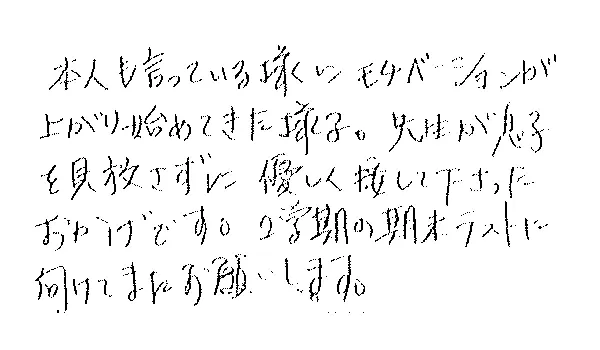 本人も言っている様に モチベーションが
上がり始めてきた様子。先生が息子
を見放さずに 優しく接して下さった
おかげです。2学期の期末テストに
向けてまたお願いします。